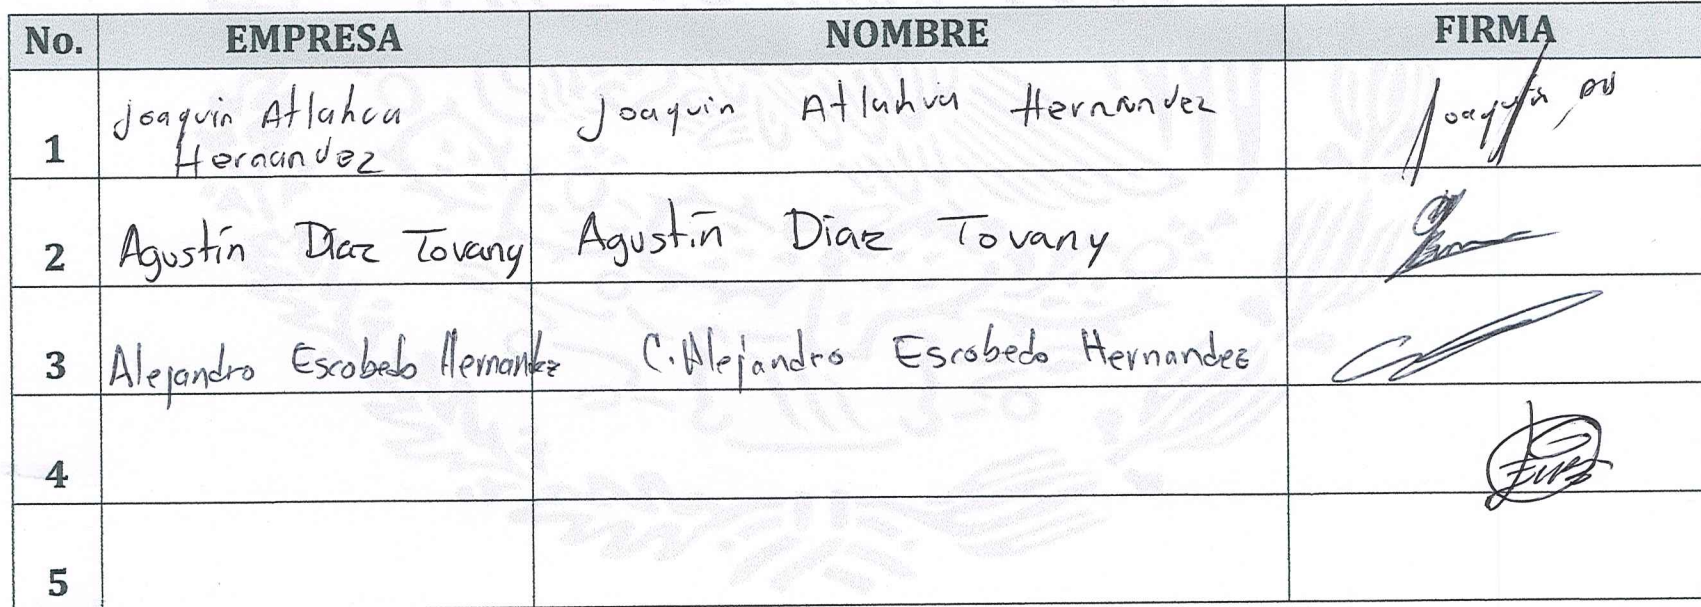 No. EMPRESA NOMBRE FIRMA
1 Joaquin Atlahua Joaquin Atlahua Hernandez Joaquin
Hernandez
2 Agustín Díaz Tovany Agustín Díaz Tovany
3 Alejandro Escobedo Hernandez C. Alejandro Escobedo Hernandez
4
5